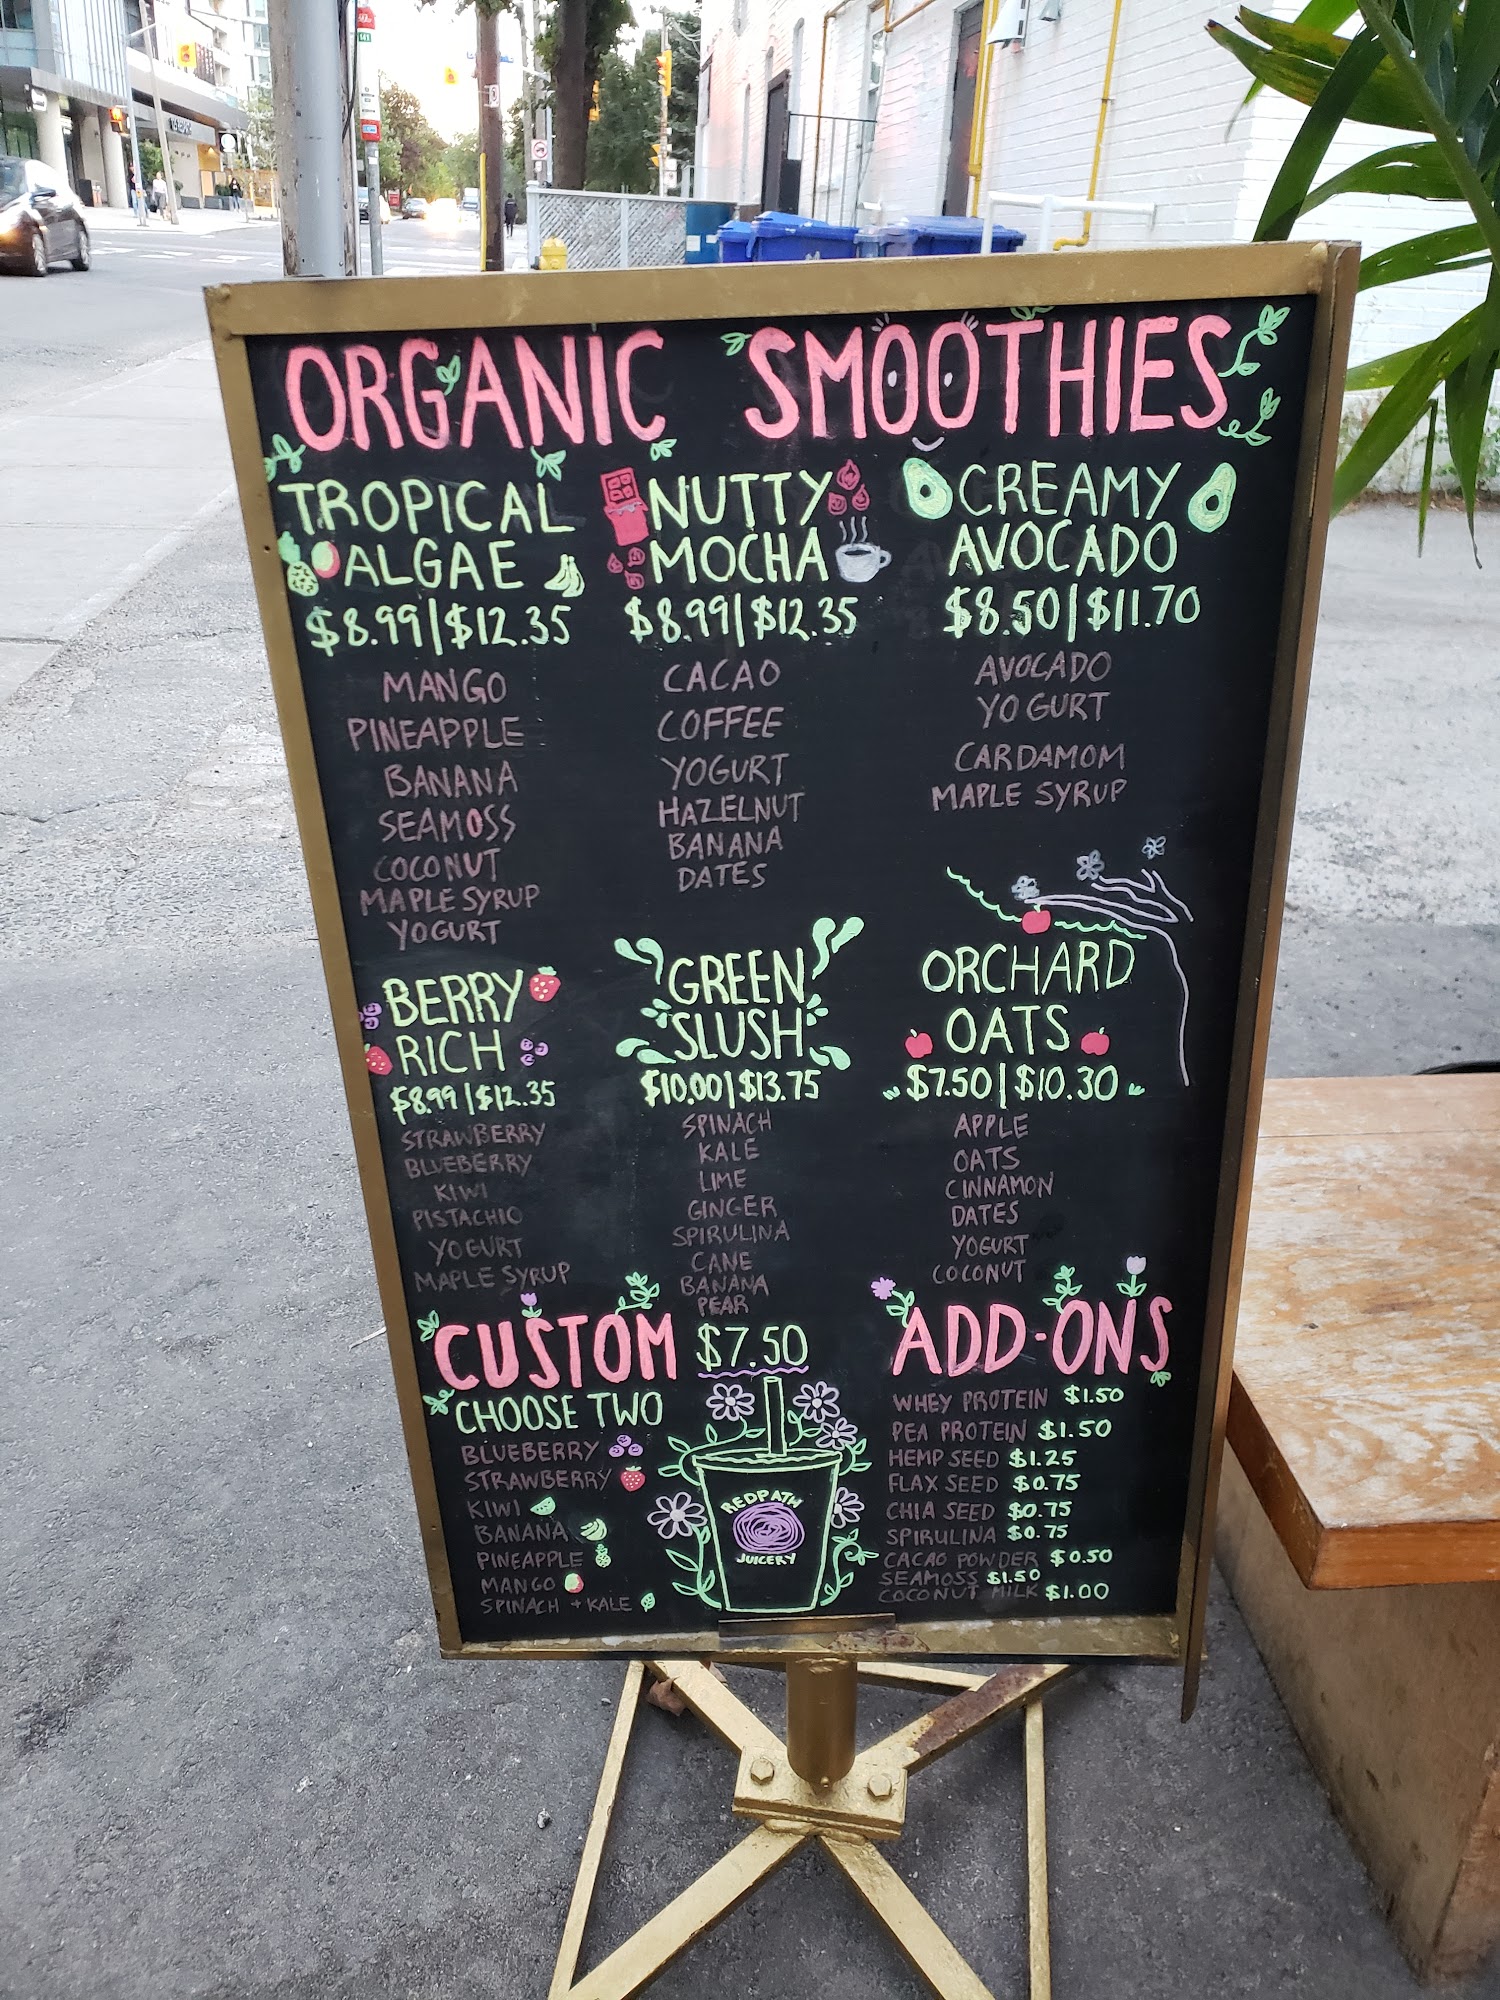 ORGANIC SMOOTHIES
TROPICAL
ALGAE
$8.99|$12.35
MANGO
PINEAPPLE
BANANA
SEAMOSS
COCONUT
MAPLE SYRUP
YOGURT
NUTTY
MOCHA
$8.99|$12.35
CACAO
COFFEE
YOGURT
HAZELNUT
BANANA
DATES
CREAMY
AVOCADO
$8.50|$11.70
AVOCADO
YOGURT
CARDAMOM
MAPLE SYRUP
BERRY
RICH
$8.99|$12.35
STRAWBERRY
BLUEBERRY
KIWI
PISTACHIO
YOGURT
MAPLE SYRUP
GREEN
SLUSH
$10.00|$13.75
SPINACH
KALE
LIME
GINGER
SPIRULINA
CANE
BANANA
PEAR
ORCHARD
OATS
$7.50|$10.30
APPLE
OATS
CINNAMON
DATES
YOGURT
COCONUT
CUSTOM $7.50
CHOOSE TWO
BLUEBERRY
STRAWBERRY
KIWI
BANANA
PINEAPPLE
MANGO
SPINACH + KALE
REDPATH
JUICERY
ADD-ONS
WHEY PROTEIN $1.50
PEA PROTEIN $1.50
HEMP SEED $1.25
FLAX SEED $0.75
CHIA SEED $0.75
SPIRULINA $0.75
CACAO POWDER $0.50
SEAMOSS $1.50
COCONUT MILK $1.00